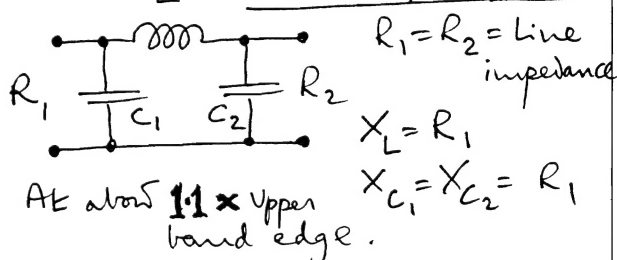 R₁ = R₂ = Line
impedance
R₁
C₁
C₂
R₂
X_L = R₁
X_C₁ = X_C₂ = R₁
At about 1.1 x Upper
band edge.